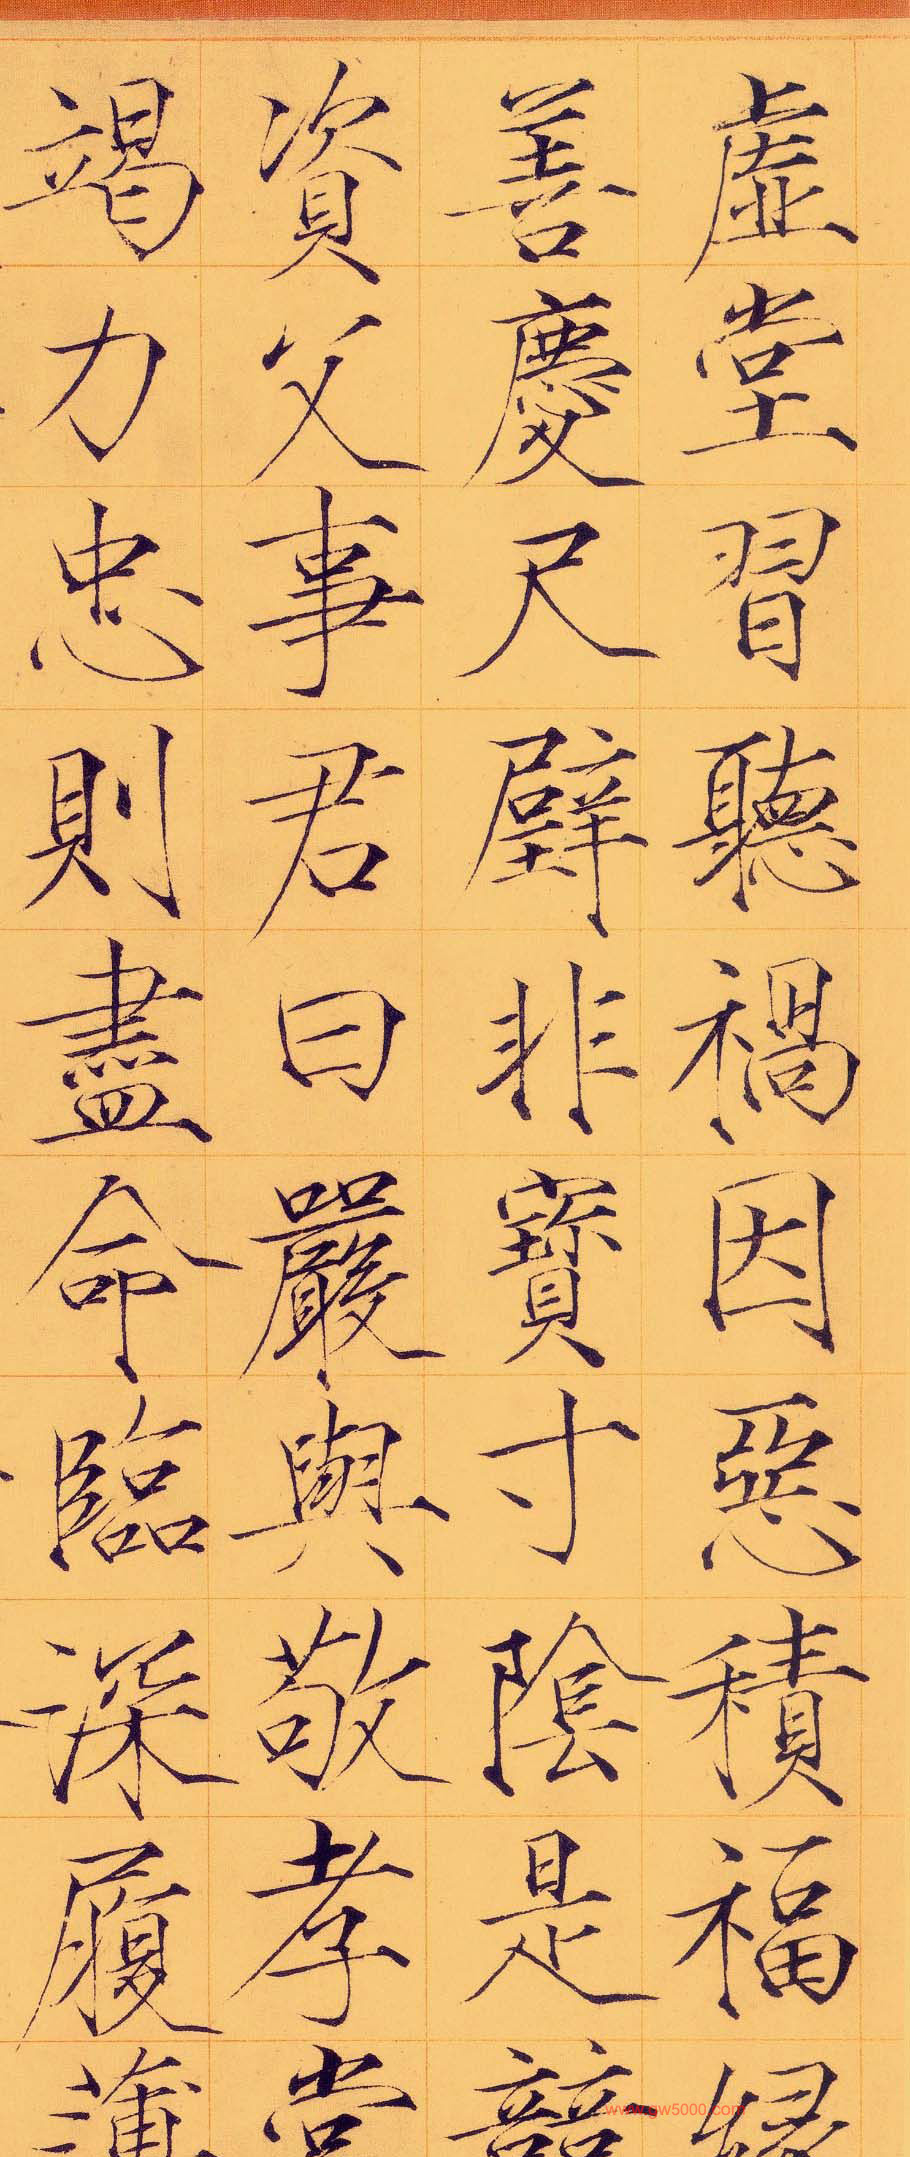 虛堂習聽禍因惡積福緣
善慶尺璧非寶寸陰是競
資父事君曰嚴與敬孝當
竭力忠則盡命臨深履薄
www.gw5000.com